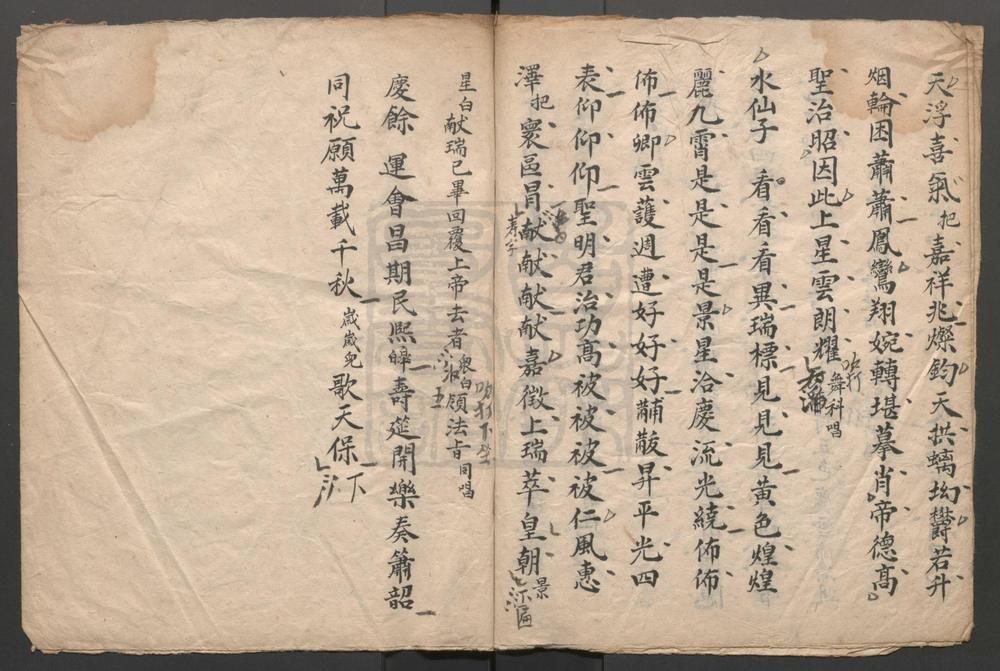 天浮喜氣把嘉祥兆燦鈞天拱螭坳欝若升
烟輪囷蕭蕭鳳鸞翔婉轉堪摹肖帝德高
聖治昭因此上星雲朗耀吹打舞科唱
水仙子 看看看異瑞標見見見黃色煌煌
麗九霄是是是是景星洽慶流光繞佈佈
佈佈卿雲護週遭好好好黼黻昇平光四
表仰仰仰聖明君治功高被被被被仁風惠
澤把寰區冒献献献献嘉徵上瑞萃皇朝景
星白献瑞已畢回覆上帝去者衆白領法旨同唱
吹打下坐
慶餘 運會昌期民熙皥壽筵開樂奏簫韶
同祝願萬載千秋歲歲兒歌天保下